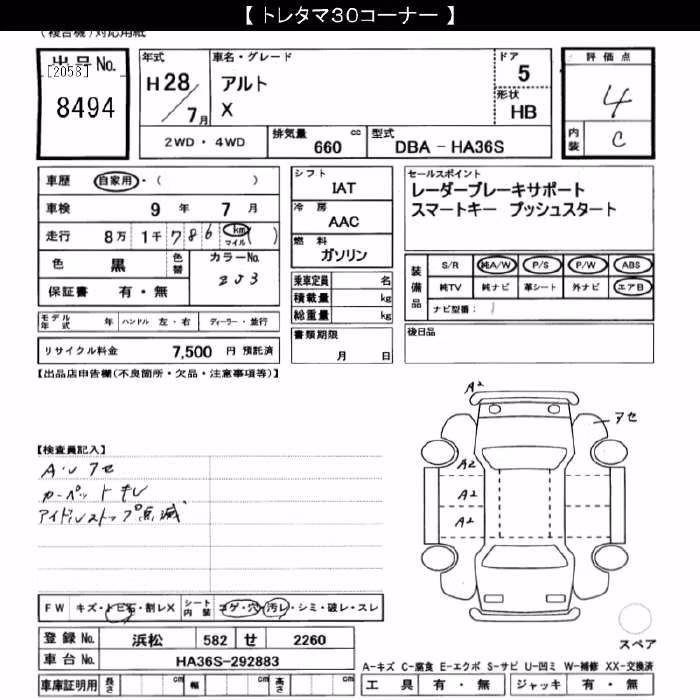 【 トレタマ30コーナー 】
(複合機)対応用紙
出品No.
[2058]
8494
年式
H28/7月
車名・グレード
アルト
X
ドア
5
形状
HB
評価点
4
内装
C
2WD・4WD
排気量
660 cc
型式
DBA - HA36S
車歴 自家用・( )
車検 9 年 7 月
走行 8万 1千 7 8 6 (km マイル)
色 黒
色替
カラーNo.
ZJ3
保証書 有・無
シフト
IAT
冷房
AAC
燃料
ガソリン
乗車定員 名
積載量 kg
総重量 kg
書類期限
月 日
セールスポイント
レーダーブレーキサポート
スマートキー プッシュスタート
装備品
S/R 純A/W P/S P/W ABS
純TV 純ナビ 革シート 外ナビ エアB
ナビ型番:
後日品
モデル年式 年 ハンドル 左・右 ディーラー・並行
リサイクル料金 7,500 円 預託済
【出品店申告欄(不良箇所・欠品・注意事項等)】
【検査員記入】
A・U アセ
カーペットキレ
アイドルストップ点滅
A2
アセ
A2
A2
A2
FW キズ・トビ石・割レX
シート内装 コゲ・穴・汚レ・シミ・破レ・スレ
スペア
登録No. 浜松 582 せ 2260
車台No. HA36S-292883
車庫証明用 長さ cm 幅 cm 高さ cm
A-キズ C-腐食 E-エクボ S-サビ U-凹ミ W-補修 XX-交換済
工具 有・無 ジャッキ 有・無